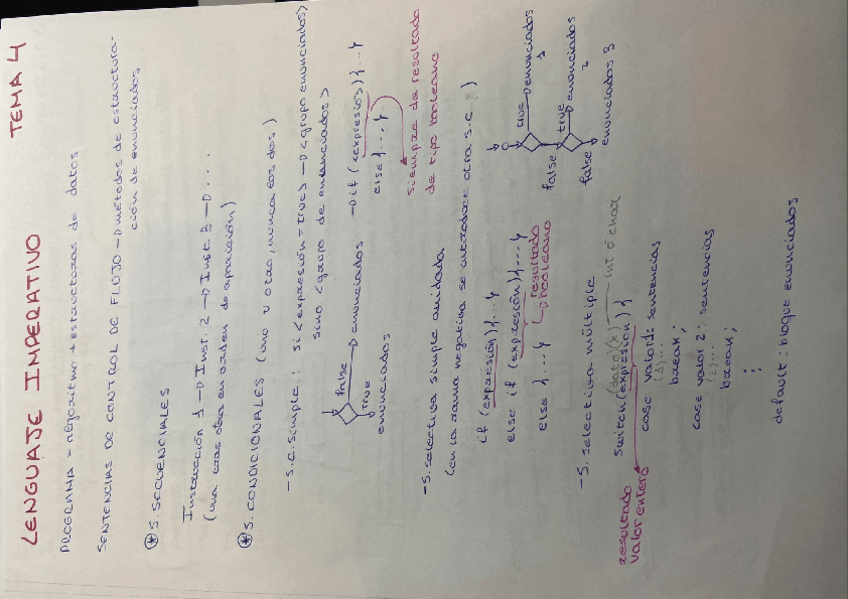 TEMA 4
LENGUAJE IMPERATIVO
PROGRAMA = algoritmo + estructuras de datos
SENTENCIAS DE CONTROL DE FLUJO → métodos de estructura-
ción de enunciados
* S. SECUENCIALES
Instrucción 1 → Inst. 2 → Inst 3 → ...
(una tras otra en orden de aparición)
* S. CONDICIONALES (uno u otro, nunca los dos)
- S.C. Simple : si <expresión = true> → <grupo enunciados>
sino <grupo de enunciados>
false → enunciados
true
enunciados
→ if (<expresión>) {...}
else {...}
siempre da resultado
de tipo booleano
- S. selectiva simple anidada
(en la rama negativa se introduce otra s.c.)
if (expresión) {...}
else if (expresión) {...}
else {...}
resultado
booleano
true → enunciados
1
false
true → enunciados
2
false
enunciados 3
- S. selectiva múltiple
(dato)(x) int o char
switch (expresión) {
resultado
valor entero
case valor1: sentencias
(1)...
break;
case valor 2: sentencias
(2)...
break;
:
default: bloque enunciados